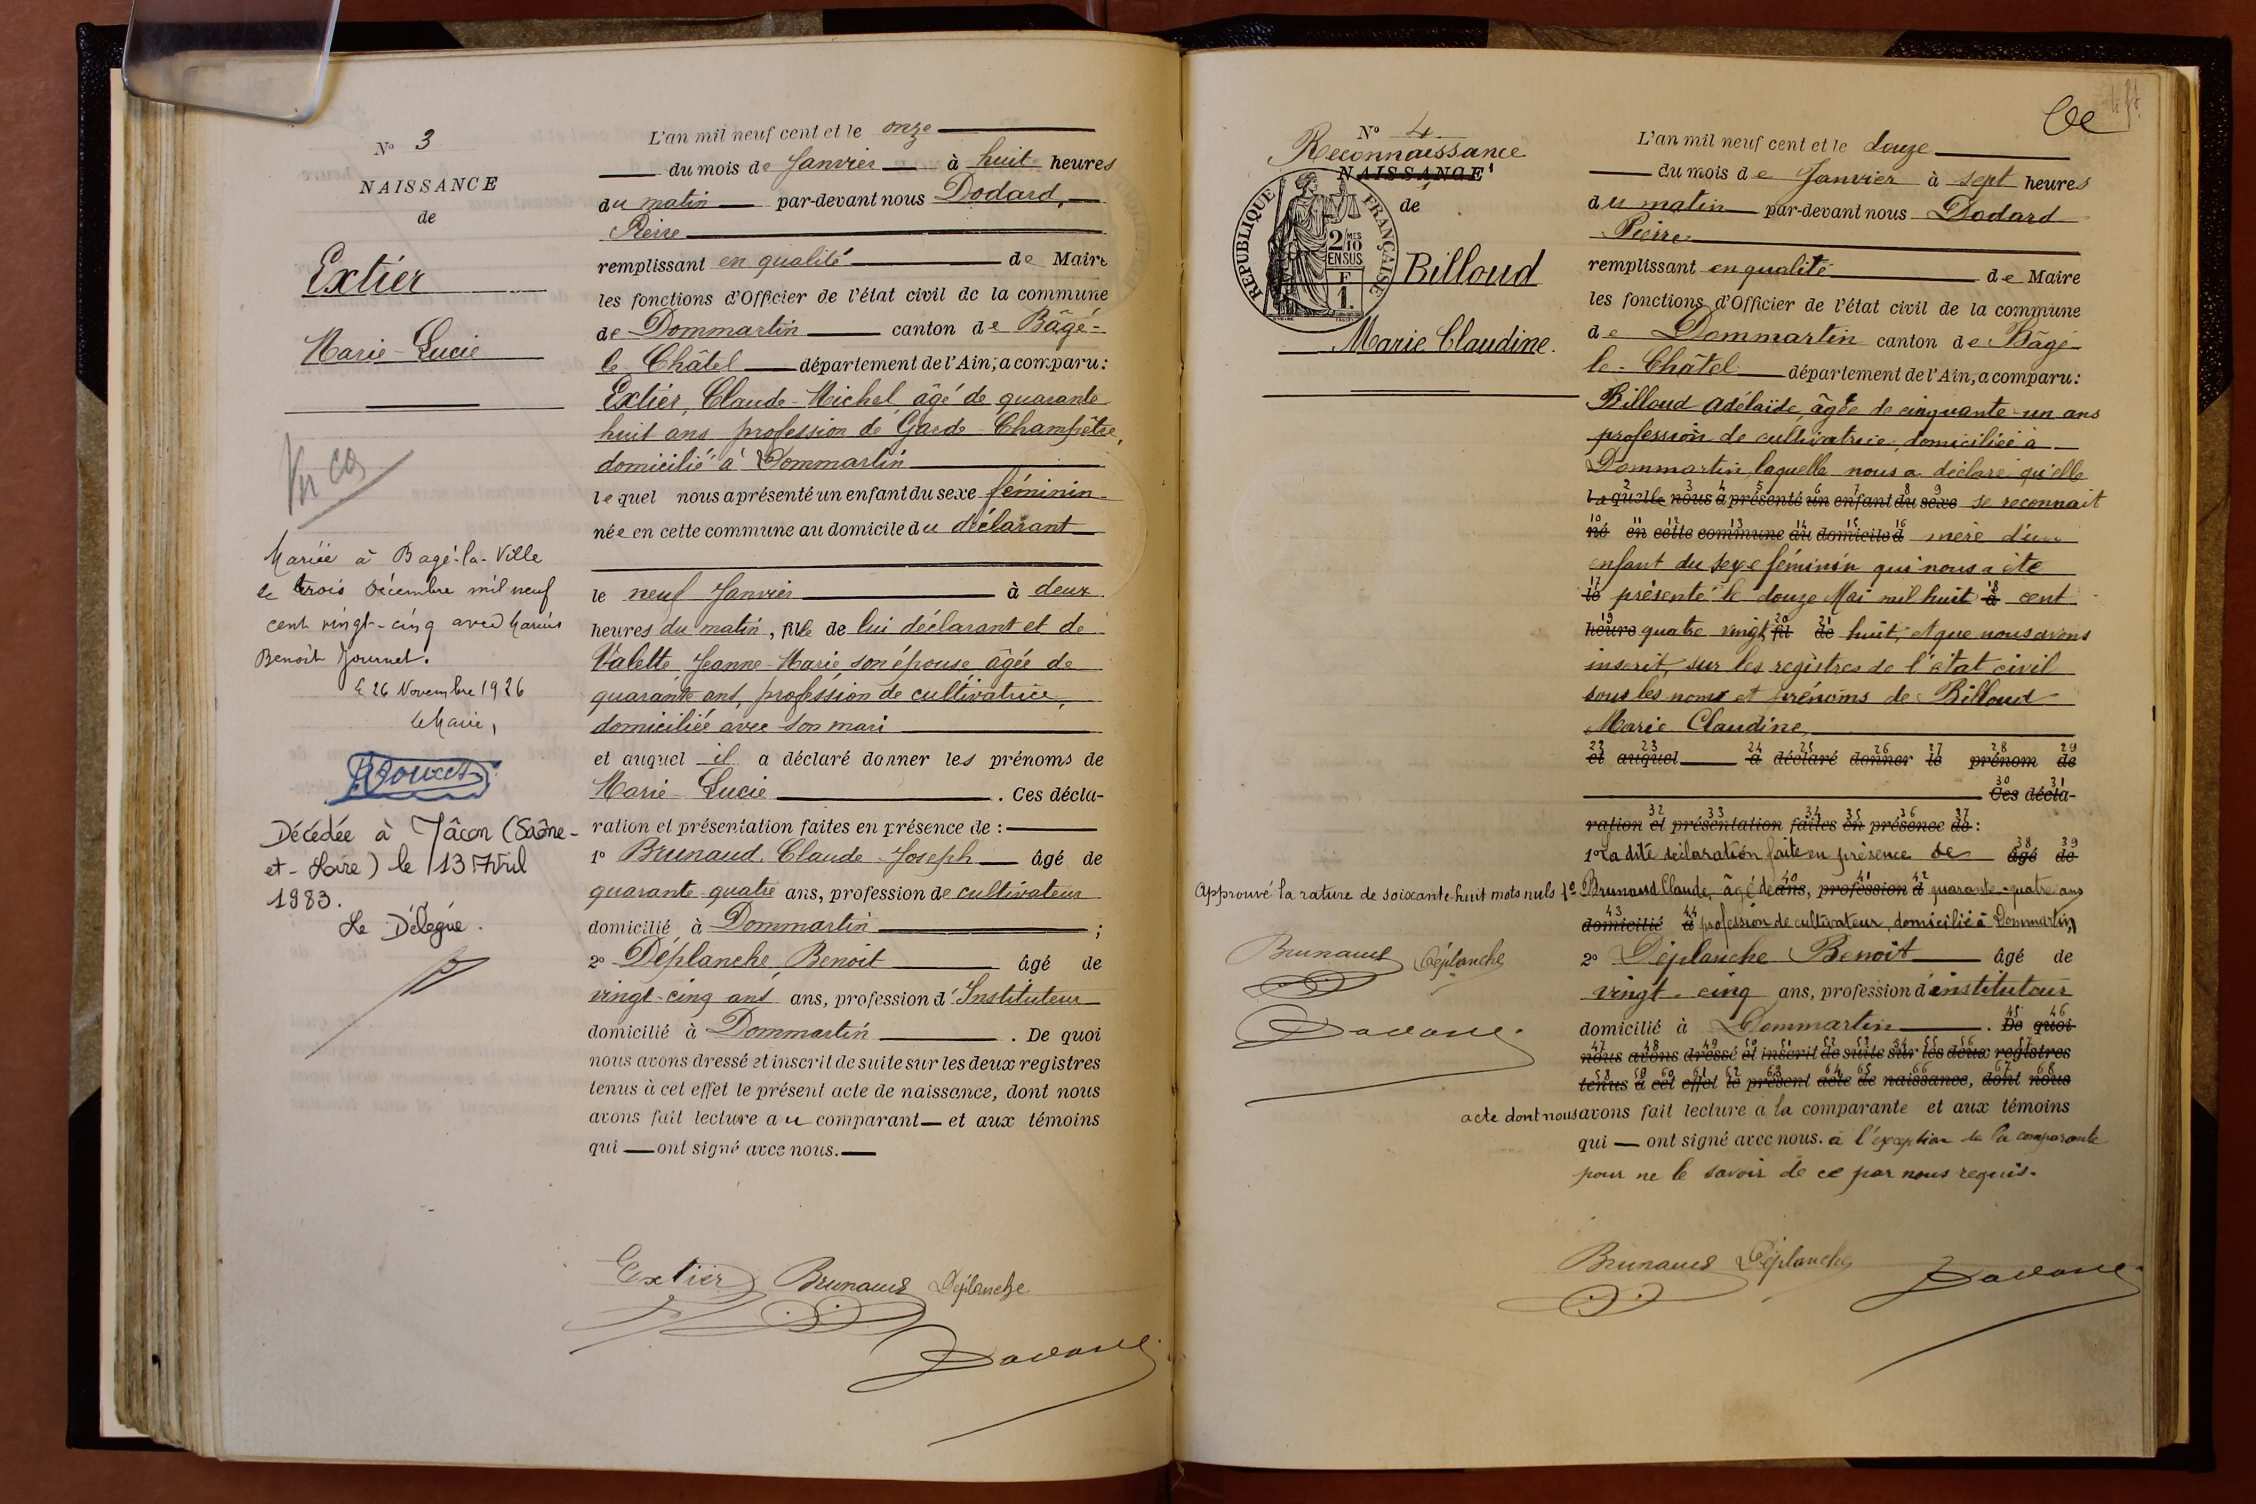 N° 3
NAISSANCE
de
Extier
Marie-Lucie
Mariée à Bagé-la-Ville
le trois Décembre mil neuf
cent vingt-cinq avec Marius
Benoît Journet.
Le 26 Novembre 1926
Le Maire,
Décédée à Mâcon (Saône-
et-Loire) le 13 Avril
1983.
Le Délégué.
L'an mil neuf cent et le onze
du mois de Janvier à huit heures
du matin par-devant nous Dodard,
Pierre
remplissant en qualité de Maire
les fonctions d'Officier de l'état civil de la commune
de Dommartin canton de Bâgé-
le Châtel département de l'Ain, a comparu:
Extier, Claude-Michel âgé de quarante
huit ans profession de Garde-Champêtre,
domicilié à Dommartin
lequel nous a présenté un enfant du sexe féminin
née en cette commune au domicile du déclarant
le neuf Janvier à deux
heures du matin, fille de lui déclarant et de
Valette Jeanne-Marie son épouse âgée de
quarante ans, profession de cultivatrice,
domiciliée avec son mari
et auquel il a déclaré donner les prénoms de
Marie-Lucie. Ces décla-
ration et présentation faites en présence de:
1° Brunaud, Claude-Joseph âgé de
quarante-quatre ans, profession de cultivateur
domicilié à Dommartin;
2° Déplanche, Benoit âgé de
vingt-cinq ans ans, profession d'Instituteur
domicilié à Dommartin. De quoi
nous avons dressé et inscrit de suite sur les deux registres
tenus à cet effet le présent acte de naissance, dont nous
avons fait lecture au comparant et aux témoins
qui ont signé avec nous.
Extier Brunaud Déplanche
Dodard
N° 4
Reconnaissance
NAISSANCE
de
RÉPUBLIQUE FRANÇAISE
2/10 MES
EN SUS
F
1.
Billoud
Marie Claudine.
Approuvé la rature de soixante-huit mots nuls
Brunaud Déplanche
Dodard
L'an mil neuf cent et le douze
du mois de Janvier à sept heures
du matin par-devant nous Dodard
Pierre
remplissant en qualité de Maire
les fonctions d'Officier de l'état civil de la commune
de Dommartin canton de Bâgé
le-Châtel département de l'Ain, a comparu:
Billoud Adélaïde, âgée de cinquante-un ans
profession de cultivatrice, domiciliée à
Dommartin, laquelle nous a déclaré qu'elle
2 3 4 5 6 7 8 9
laquelle nous a présenté un enfant du sexe se reconnait
10 11 12 13 14 15 16
né en cette commune au domicile d mère d'un
enfant du sexe féminin qui nous a été
17 18
le présenté le douze Mai mil huit à cent
19 20 21
heure quatre vingt fil de huit, et que nous avons
inscrit, sur les registres de l'état civil
sous les noms et prénoms de Billoud
Marie Claudine
22 23 24 25 26 27 28 29
et auquel a déclaré donner le prénom de
30 31
Ces décla-
32 33 34 35 36 37
ration et présentation faites en présence de:
38 39
1° La dite déclaration faite en présence de âgé de
40 41 42
1° Brunaud Claude, âgé de ans, profession d quarante-quatre ans
43 44
domicilié à profession de cultivateur, domicilié à Dommartin,
2° Déplanche Benoît âgé de
vingt-cinq ans, profession d'instituteur
45 46
domicilié à Dommartin. De quoi
47 48 49 50 51 52 53 54 55 56 57
nous avons dressé et inscrit de suite sur les deux registres
58 59 60 61 62 63 64 65 66 67 68
tenus à cet effet le présent acte de naissance, dont nous
acte dont nous avons fait lecture à la comparante et aux témoins
qui ont signé avec nous. à l'exception de la comparante
pour ne le savoir de ce par nous requis.
Brunaud Déplanche
Dodard